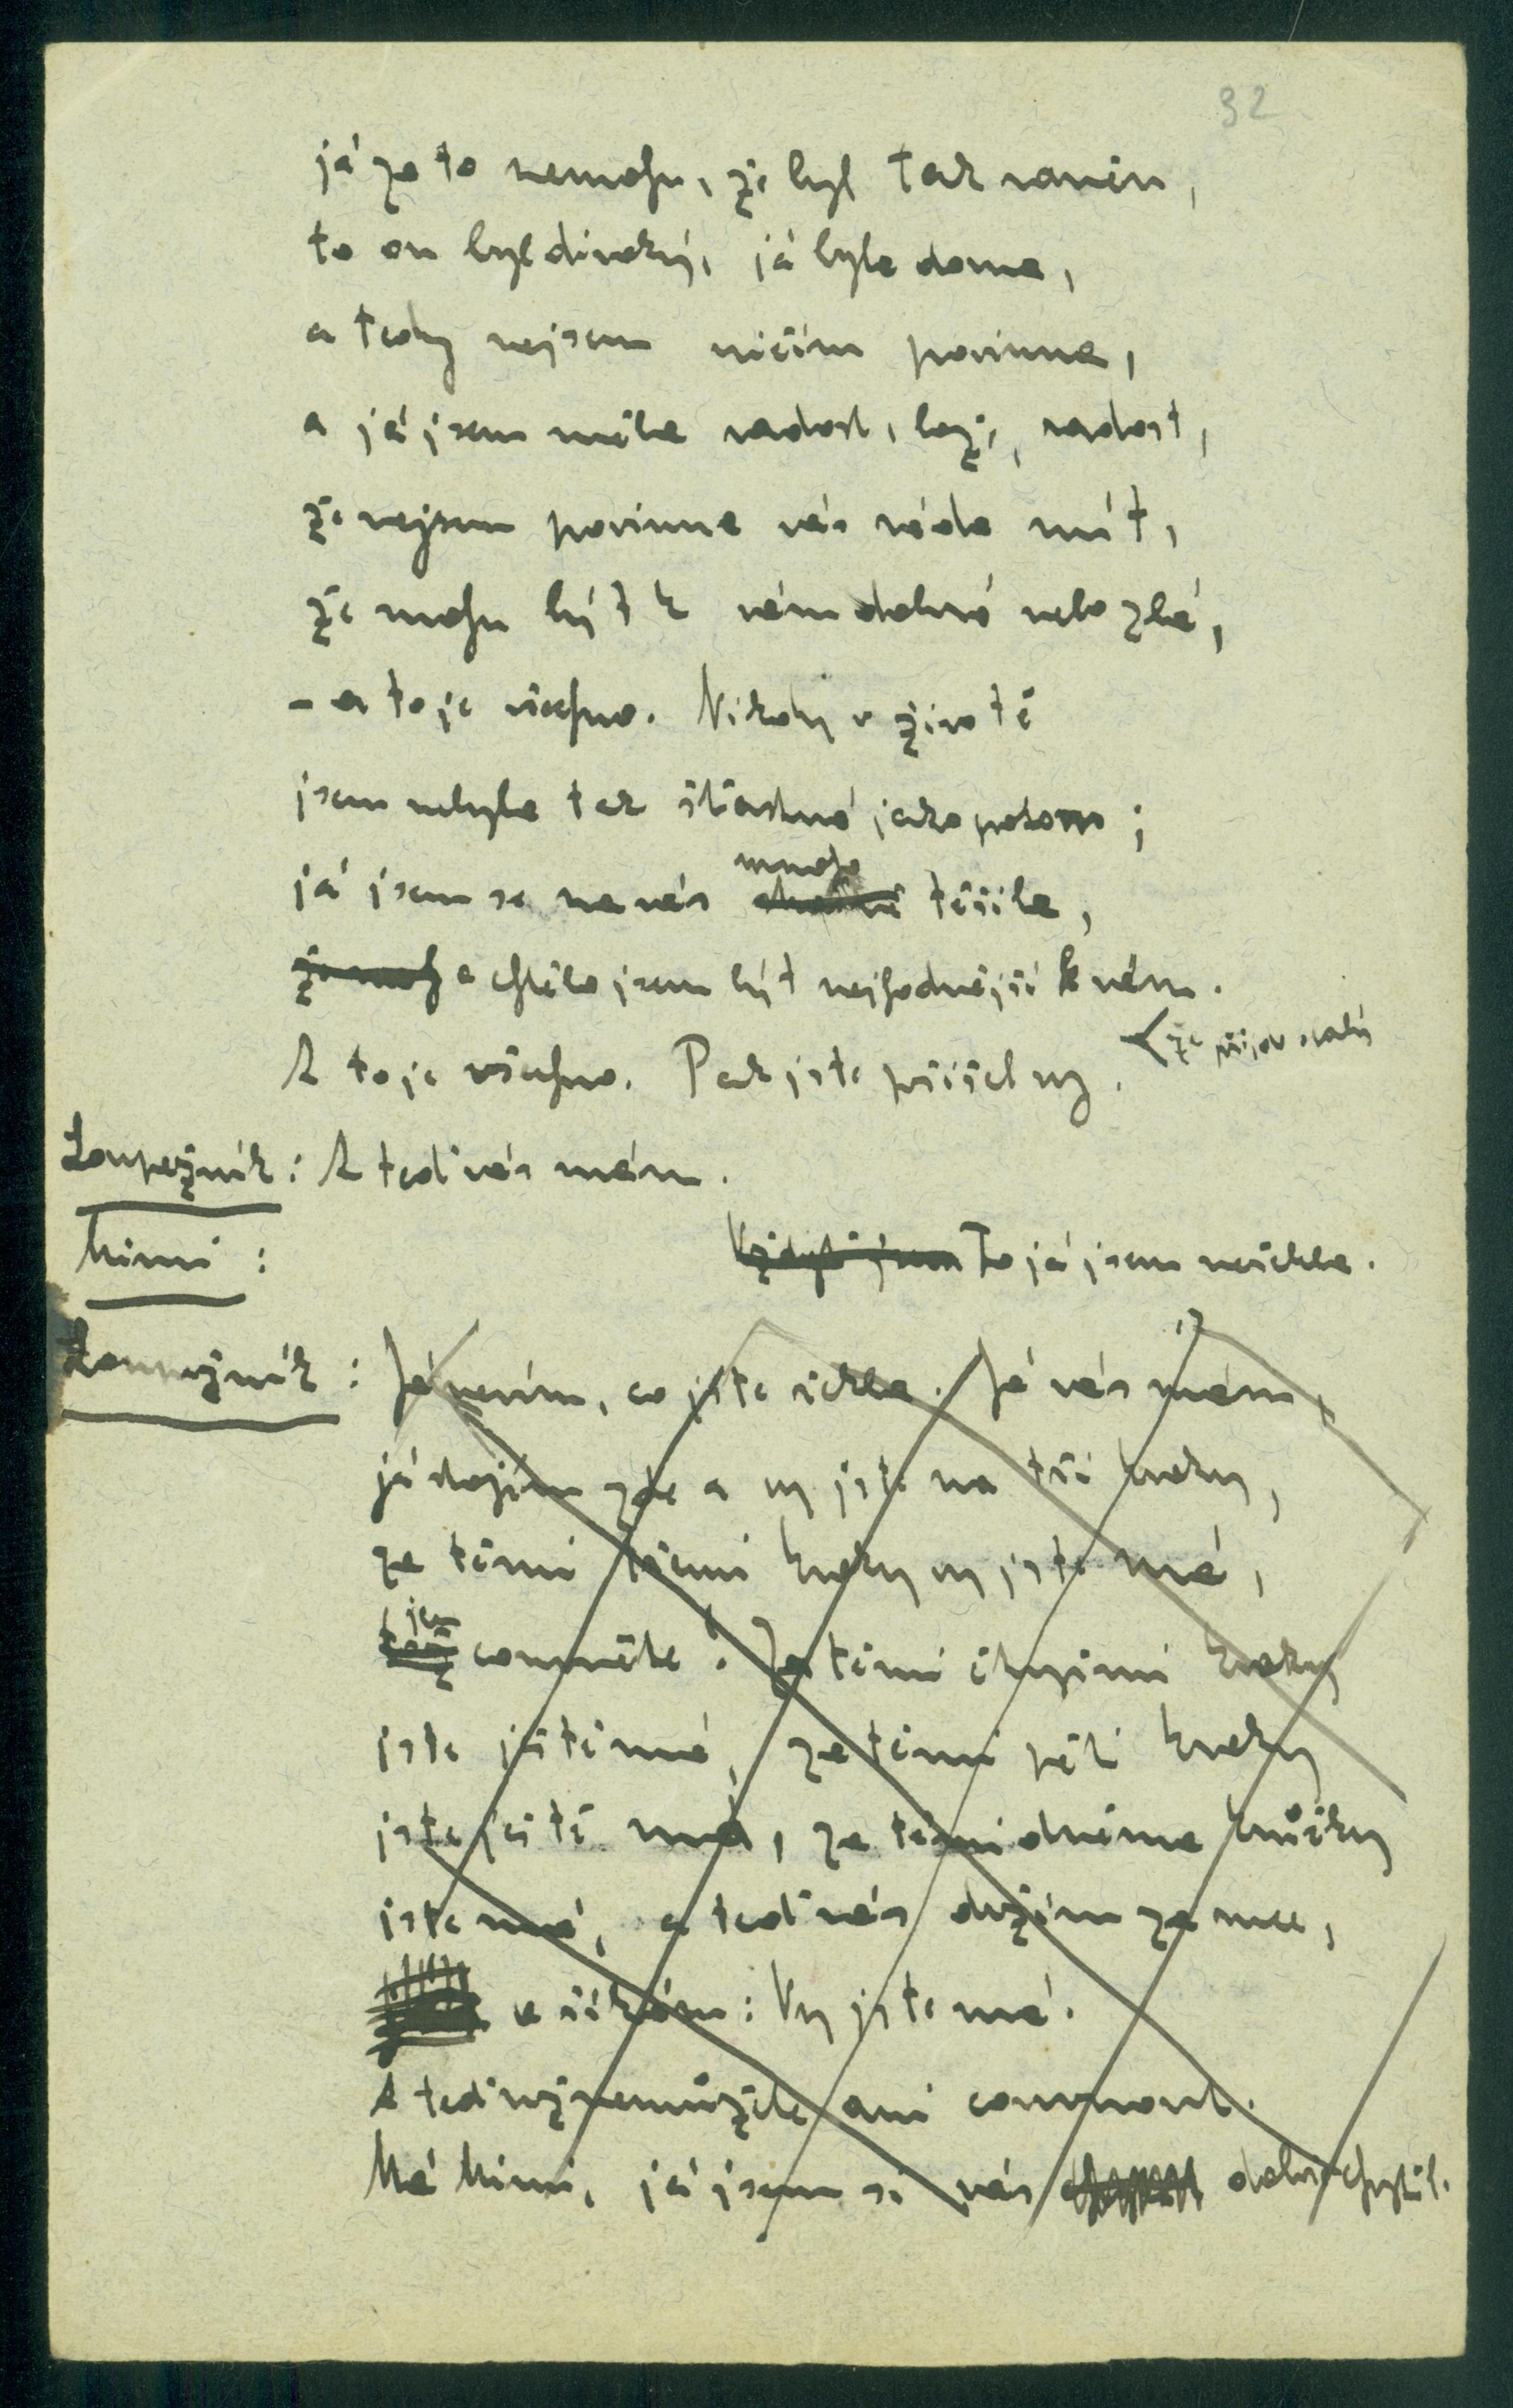 32
já za to nemohu, že byl tak raněn,
to on byl divoký, já byla doma,
a tedy nejsem ničím povinna,
a já jsem měla radost, bože, radost,
že nejsem povinna vás ráda mít,
že mohu být k vám dobrá nebo zlá,
– a to je všechno. Nikdy v životě
jsem nebyla tak šťastná jako potom;
mnoho
já jsem se na vás těšila,
že moh a chtěla jsem být nejhodnější k vám.
A to je všechno. Pak jste přišel vy.
Loupežník: A teď vás mám.
Mimi: Vždyť jsem To já jsem neřekla.
Loupežník: Já nevím, co jste řekla. Já vás mám,
já stojím zde a vy jste na tři kroky,
za těmi třemi kroky vy jste má,
jen
couvněte! Za těmi čtyřmi kroky
jste ještě má, za těmi pěti kroky
jste ještě má, za těmi dvěma krůčky
jste má, a teď vás držím za ruce,
a říkám: Vy jste má.
A teď už nemůžete ani couvnout.
Má Mimi, já jsem si vás dobře chytil.